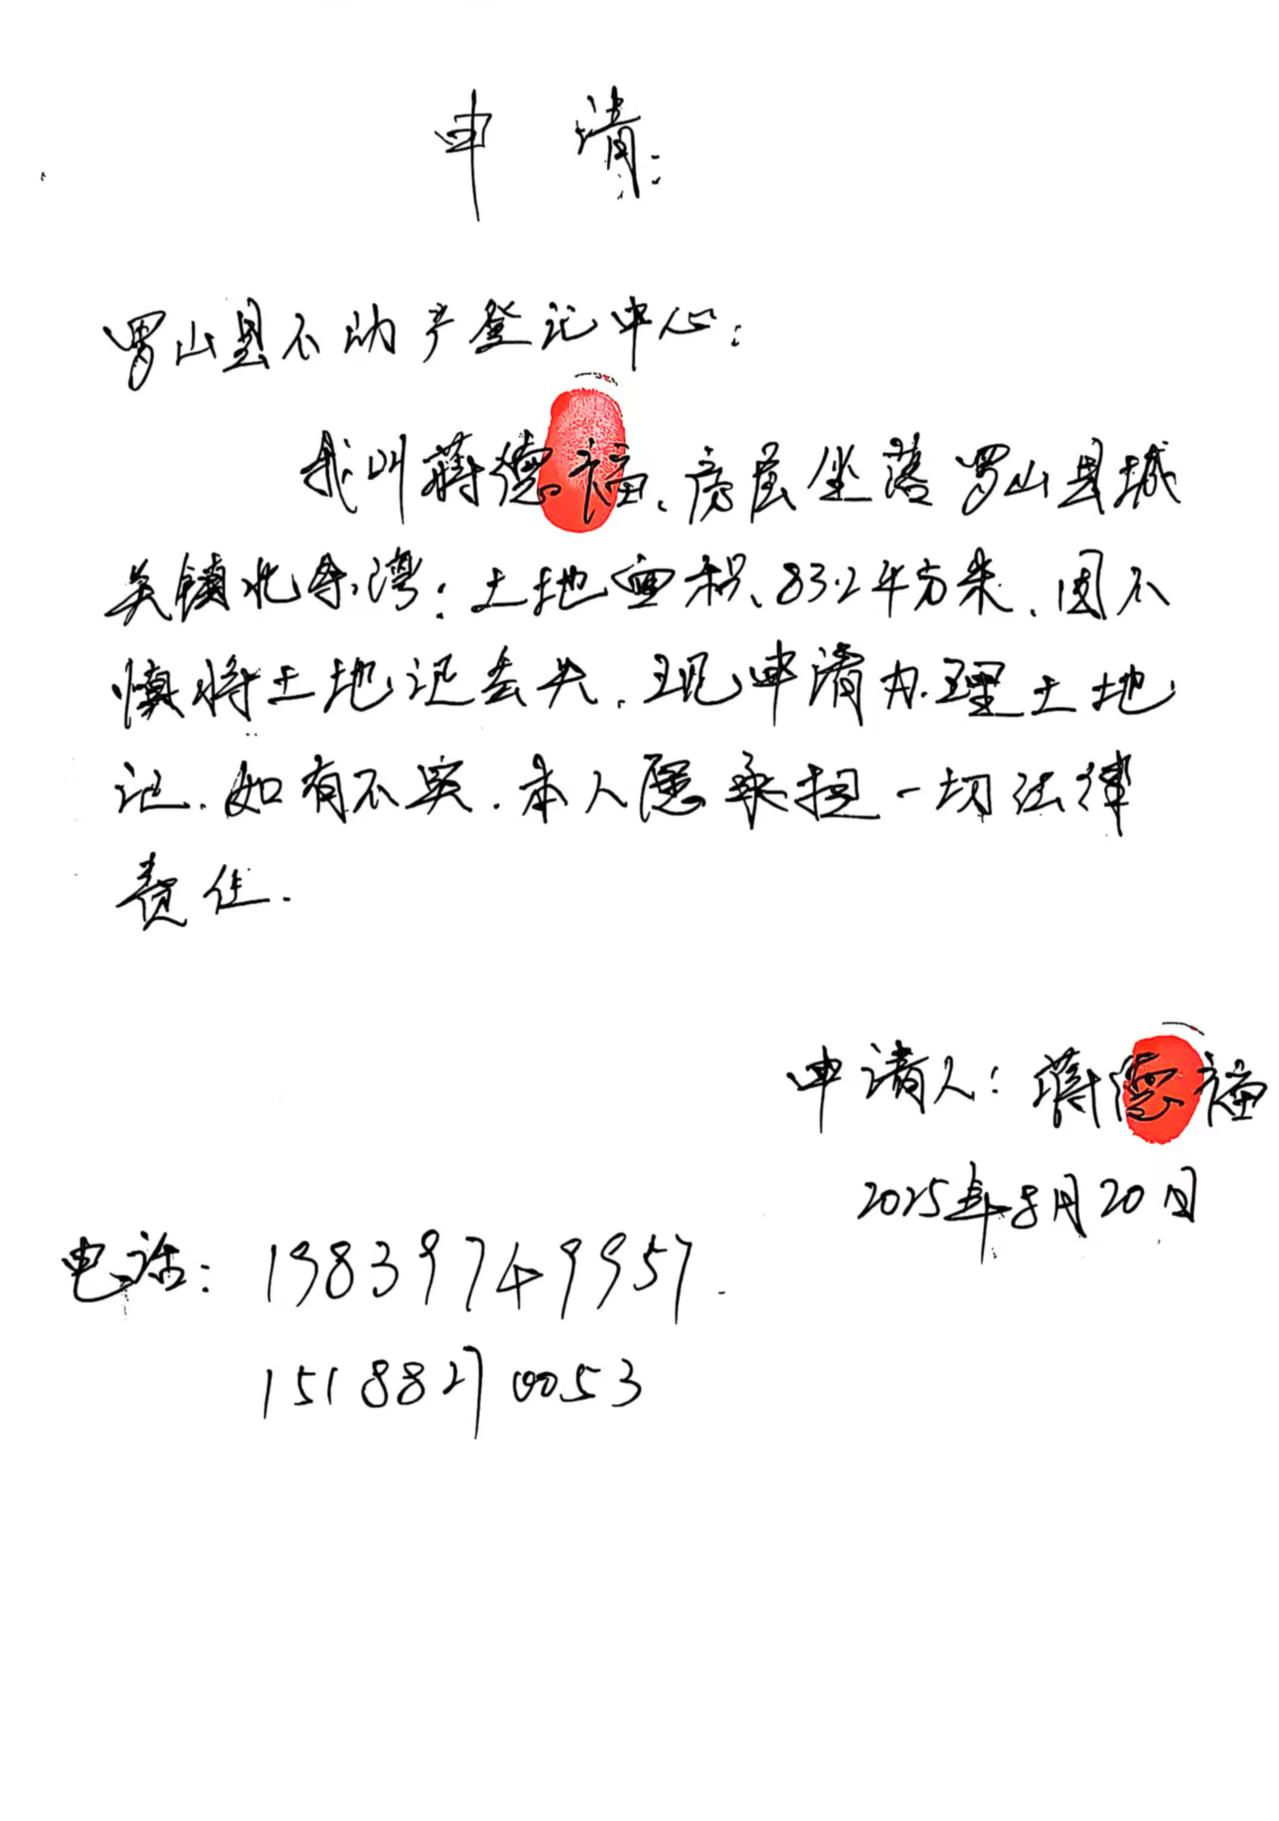 申 请:
罗山县不动产登记中心:
我叫蒋德福、房屋坐落罗山县城
关镇北余湾:土地面积、83.2平方米、因不
慎将土地证丢失.现申请办理土地
证.如有不实.本人愿承担一切法律
责任.
申请人:蒋德福
2025年8月20日
电话:19839749957.
15188270053